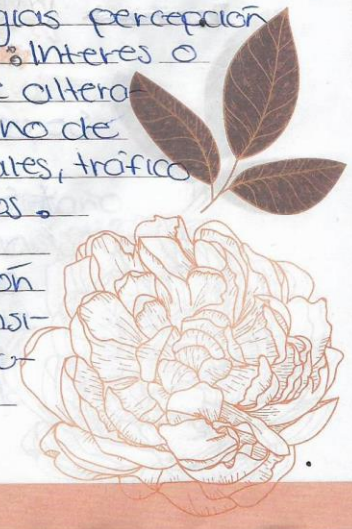 gias percepción
Interes o
e altera-
no de
ales, tráfico
os.
ón
nsi-